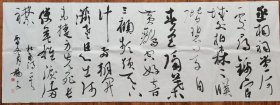 丞相祠堂何
處尋錦官
城外柏森森
映階碧草自
春色隔葉
黃鸝空好音
三顧頻煩天下
計兩朝開
濟老臣心出師
未捷身先死長
使英雄淚滿
襟